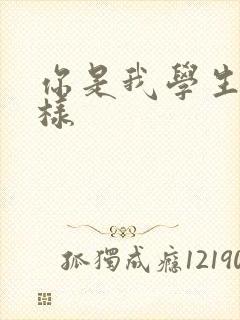 你是我學生
樣
孤獨成癮12190